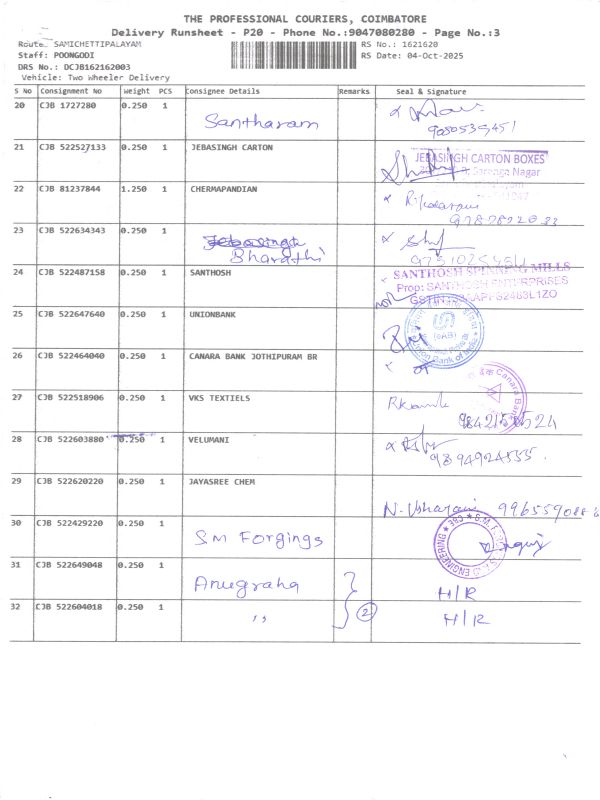 THE PROFESSIONAL COURIERS, COIMBATORE
Delivery Runsheet - P20 - Phone No.:9047080280 - Page No.:3
Route: SAMICHETTIPALAYAM
RS No.: 1621620
Staff: POONGODI
RS Date: 04-Oct-2025
DRS No.: DCJB162162003
Vehicle: Two Wheeler Delivery
S No Consignment No Weight PCS Consignee Details Remarks Seal & Signature
20 CJB 1727280 0.250 1 Santharam
9080539451
21 CJB 522527133 0.250 1 JEBASINGH CARTON JEBASINGH CARTON BOXES
Sarenga Nagar
22 CJB 81237844 1.250 1 CHERMAPANDIAN
23 CJB 522634343 0.250 1 Jebasingh
Bharathi
24 CJB 522487158 0.250 1 SANTHOSH SANTHOSH SPINNING MILLS
Prop: SANTHOSH ENTERPRISES
25 CJB 522647640 0.250 1 UNIONBANK
Union Bank of India
26 CJB 522464040 0.250 1 CANARA BANK JOTHIPURAM BR
Canara Bank
27 CJB 522518906 0.250 1 VKS TEXTIELS
28 CJB 522603880 0.250 1 VELUMANI
9894924855
29 CJB 522620220 0.250 1 JAYASREE CHEM
30 CJB 522429220 0.250 1 S.M Forgings
ENGINEERING
31 CJB 522649048 0.250 1 Anugraha H/R
32 CJB 522604018 0.250 1 ,, 2 H/R